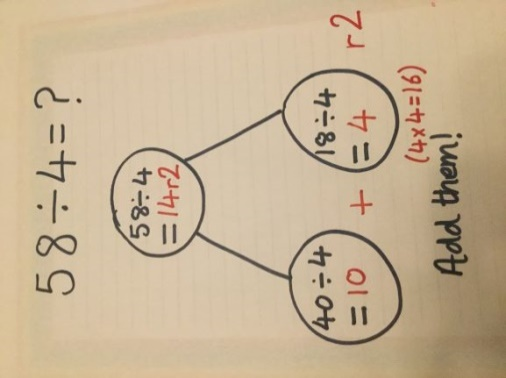 58÷4=?
58÷4
=14r2
40÷4
=10
+
18÷4
=4 r2
(4x4=16)
Add them!